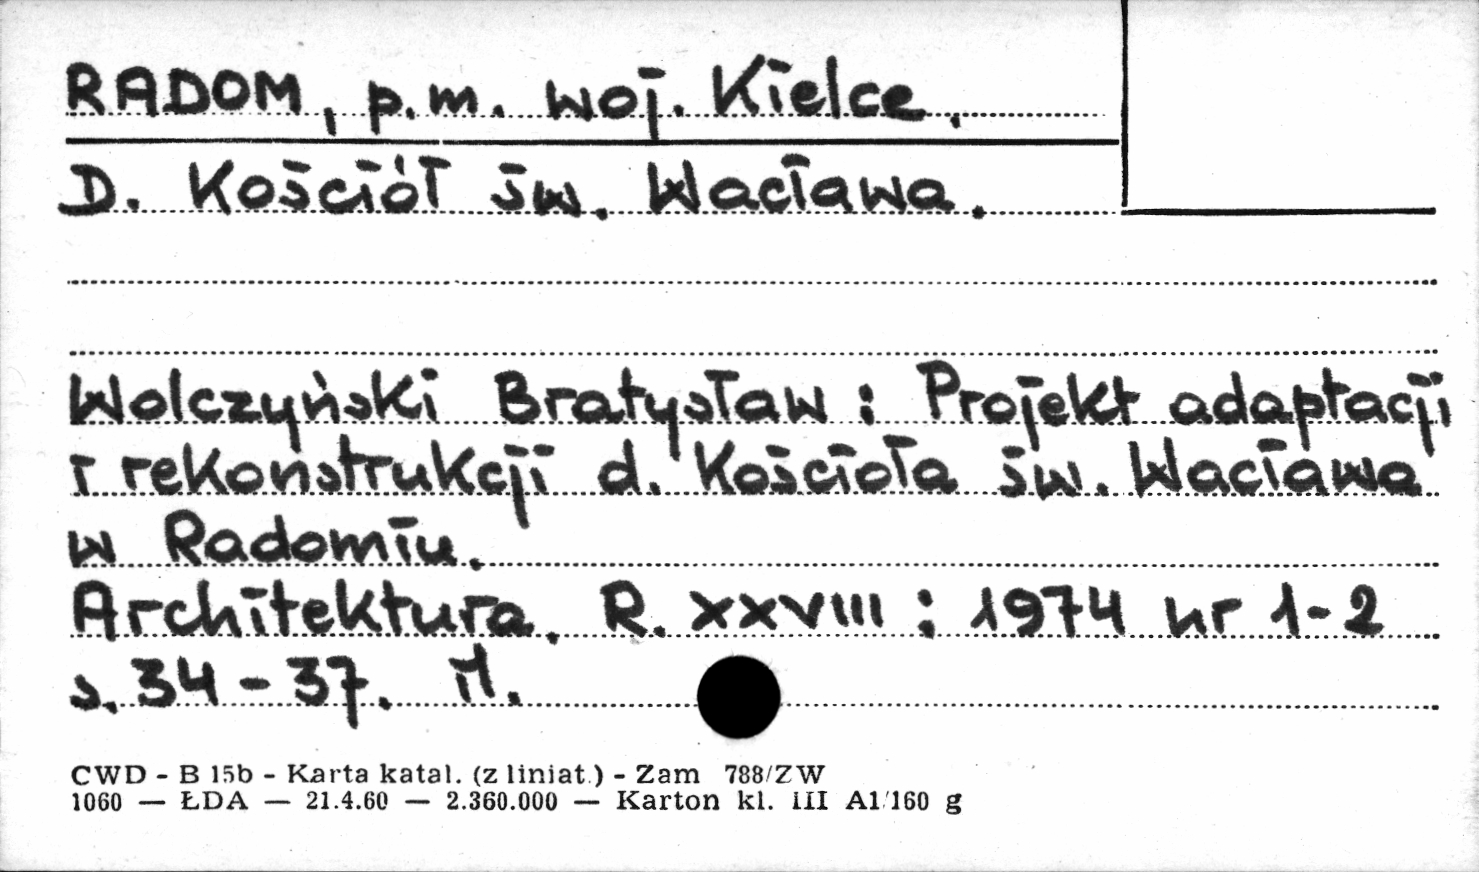 RADOM, p.m. woj. Kielce.
D. Kościół św. Wacława.
Wolczyński Bratysław : Projekt adaptacji
i rekonstrukcji d. Kościoła św. Wacława
w Radomiu.
Architektura. R. XXVIII : 1974 nr 1-2
s. 34-37. il.
CWD - B 15b - Karta katal. (z liniat.) - Zam 788/ZW
1060 — ŁDA — 21.4.60 — 2.360.000 — Karton kl. III A1/160 g